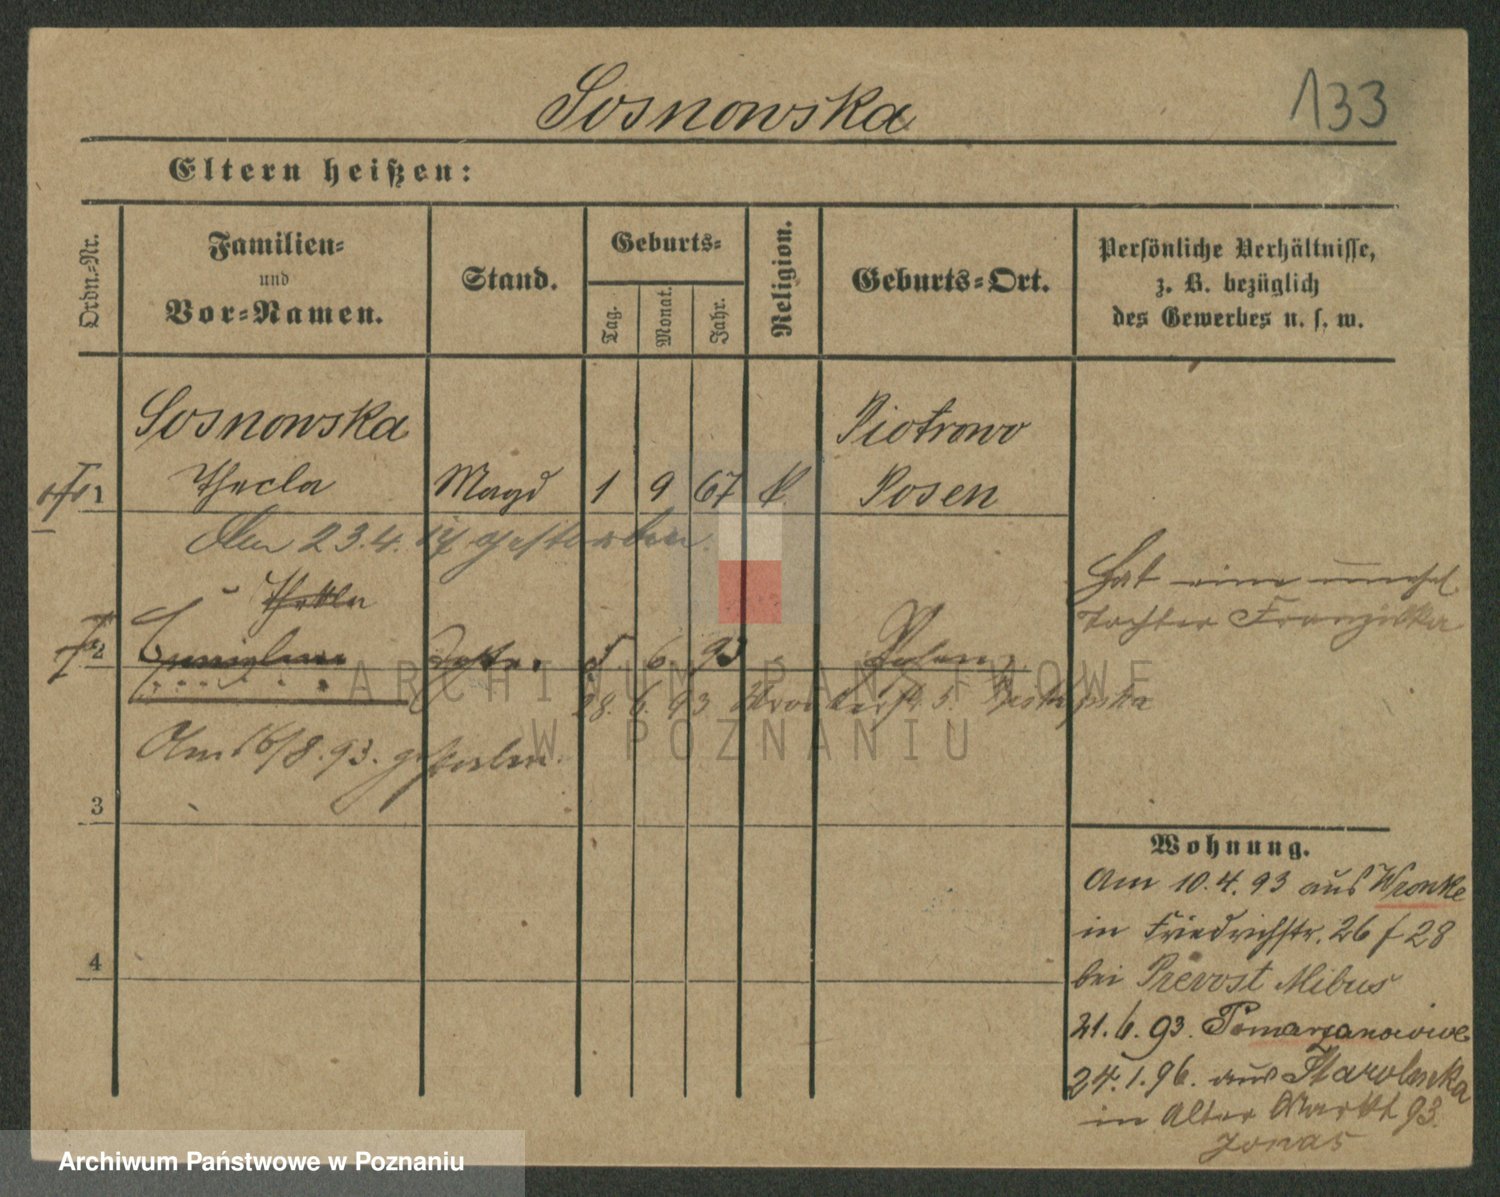 Sosnowska
133
Eltern heißen:
Ordn.-Nr.
Familien-
und
Vor-Namen.
Stand.
Geburts-
Tag.
Monat.
Jahr.
Religion.
Geburts-Ort.
Persönliche Verhältnisse,
z. B. bezüglich
des Gewerbes u. s. w.
Sosnowska Piotrowo
1 Thecla Magd 1 9 67 k Posen
23.4. gestorben.
Hat eine unehel.
Tochter Franziska
Thekla
2 5 6 93 Posen
28. 6. 93
Am 16/8.93. gestorben.
3
4
Wohnung.
Am 10.4.93 aus Wronke
in Friedrichstr. 26 f 28
bei Prevost Mibus
21.6.93. Pomarzanowice
24.1.96. aus Starolenka
in Alter Markt 93.
Jonas
ARCHIWUM PAŃSTWOWE
W POZNANIU
Archiwum Państwowe w Poznaniu